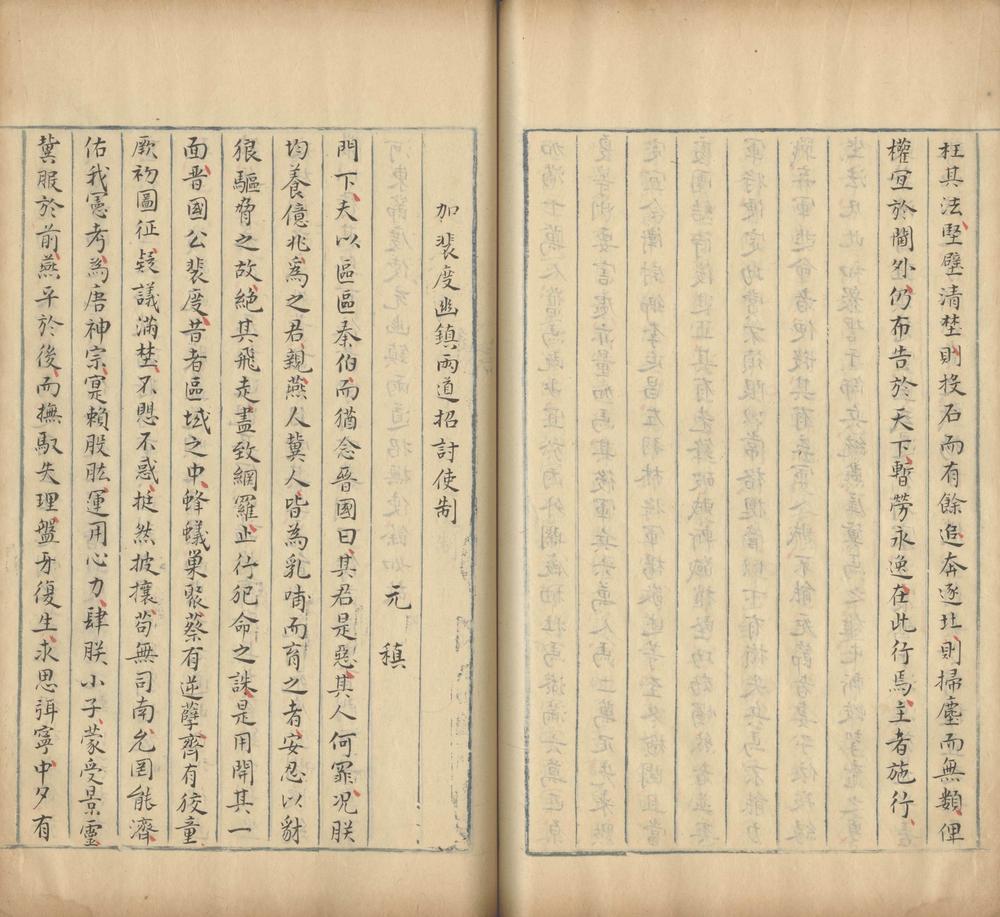 枉其法堅壁清埜則投石而有餘追奔逐北則掃塵而無類俾
權宜於閫外仍布告於天下暫勞永逸在此行焉主者施行
加裴度幽鎮兩道招討使制
元稹
門下夫以區區秦伯而猶念晉國曰其君是惡其人何罪况朕
均養億兆為之君親燕人冀人皆為乳哺而育之者安忍以豺
狼驅脅之故絕其飛走盡致網羅止行犯命之誅是用開其一
面晉國公裴度昔者區域之中蜂蟻巢聚蔡有逆孽齊有狡童
厥初圖征疑議滿埜不懕不惑挺然披攘苟無司南允罔能濟
佑我憲考為唐神宗寔賴股肱運用心力肆朕小子蒙受景靈
冀服於前燕平於後而撫馭失理盤牙復生求思弭寧中夕有